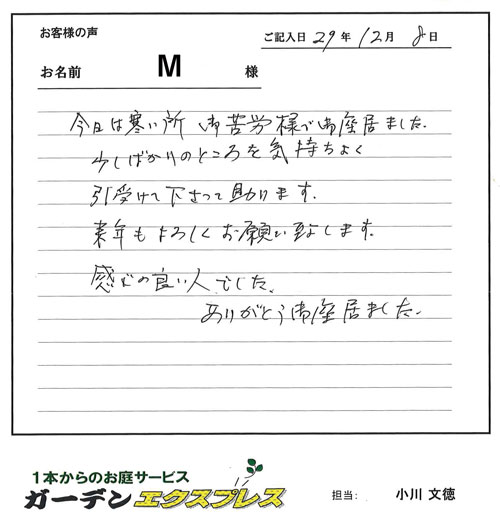 お客様の声
ご記入日 29年 12月 8日
お名前 M 様
今日は寒い所 御苦労様で御座居ました.
少しばかりのところを気持ちよく
引受けて下さって助ります.
来年もよろしくお願い致します.
感じの良い人でした.
ありがとう御座居ました.
1本からのお庭サービス
ガーデンエクスプレス
担当: 小川 文徳